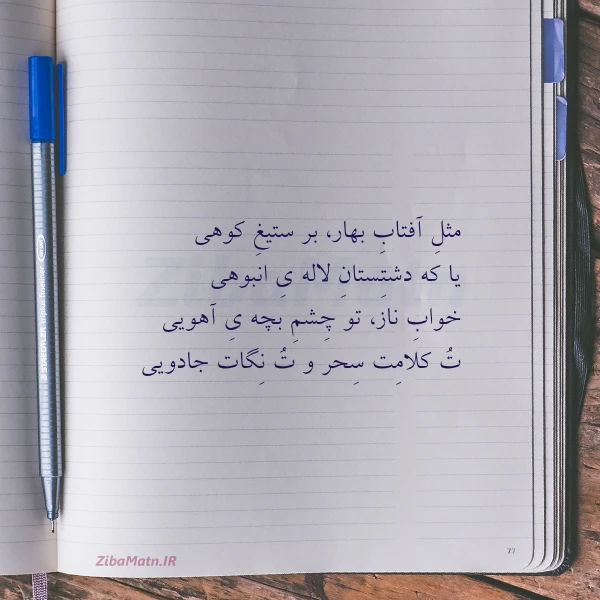 مثلِ آفتابِ بهار، بر ستیغِ کوهی
یا که دشتِستانِ لاله یِ انبوهی
خوابِ ناز، تو چِشمِ بچه یِ آهویی
تُ کلامِت سِحر و تُ نِگات جادویی
77
ZibaMatn.IR